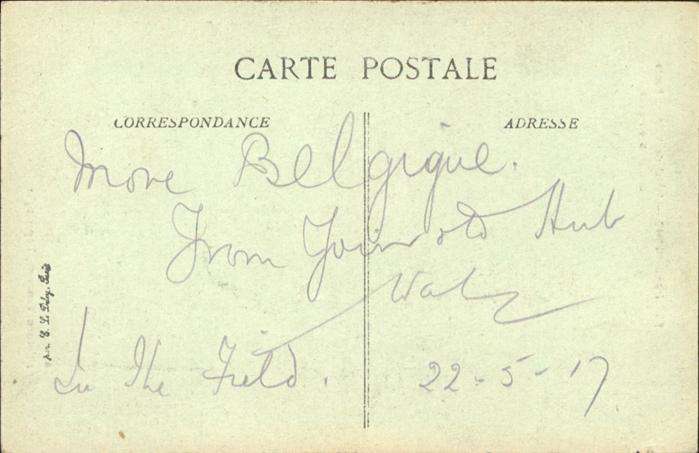 CARTE POSTALE
CORRESPONDANCE
ADRESSE
More Belgique.
From Your old Hub
In The Field.
22-5-17